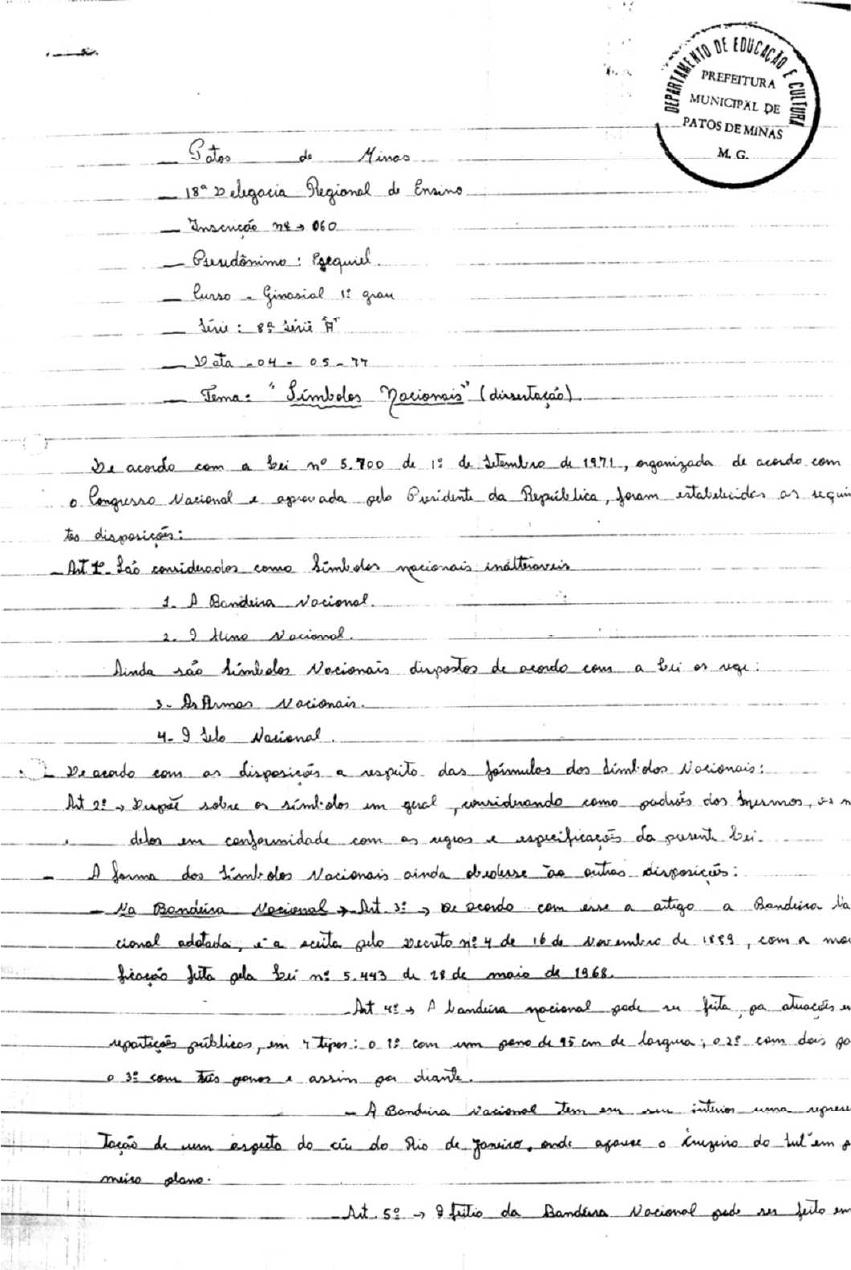 DEPARTAMENTO DE EDUCAÇÃO E CULTURA
PREFEITURA
MUNICIPAL DE
PATOS DE MINAS
M. G.
— Patos de Minas
— 18ª Delegacia Regional de Ensino
— Inscrição nº → 060
— Pseudônimo: Ezequiel.
— Curso - Ginasial 1º grau
— Série: 8ª Série "A"
— Data - 04 - 05 - 77
— Tema: "Símbolos Nacionais" (dissertação).
De acordo com a Lei nº 5.700 de 1º de Setembro de 1971, organizada de acordo com
o Congresso Nacional e aprovada pelo Presidente da República, foram estabelecidas as seguin
tes disposições:
- Art 1º - São considerados como Símbolos nacionais inalteraveis
1. A Bandeira Nacional.
2. O Hino Nacional.
Ainda são Símbolos Nacionais dispostos de acordo com a Lei os rege:
3- As Armas Nacionais.
4- O Selo Nacional.
- De acordo com as disposições a respeito das fórmulas dos Símbolos Nacionais:
Art 2º → Dispõe sobre os símbolos em geral, considerando como padrões dos mesmos, os m
delos em conformidade com as regras e especificações da presente Lei.
- A forma dos Símbolos Nacionais ainda obedesse ao outras disposições:
- Na Bandeira Nacional → Art. 3º → De acordo com esse a artigo a Bandeira Na
cional adotada, é a aceita pelo Decreto nº 4 de 16 de Novembro de 1889, com a mo
ficação feita pela Lei nº 5.443 de 28 de maio de 1968.
- Art 4º → A bandeira nacional pode ser feita, pa atuações e
repartições públicas, em 7 tipos: o 1º com um pano de 45 cm de largura; o 2º com dois pa
o 3º com três panos e assim por diante.
- A Bandeira Nacional tem em seu interior uma represe
tação de um aspeto do céu do Rio de Janeiro, onde aparece o Cruzeiro do Sul em p
meiro plano.
- Art. 5º → O feitio da Bandeira Nacional pode ser feito em